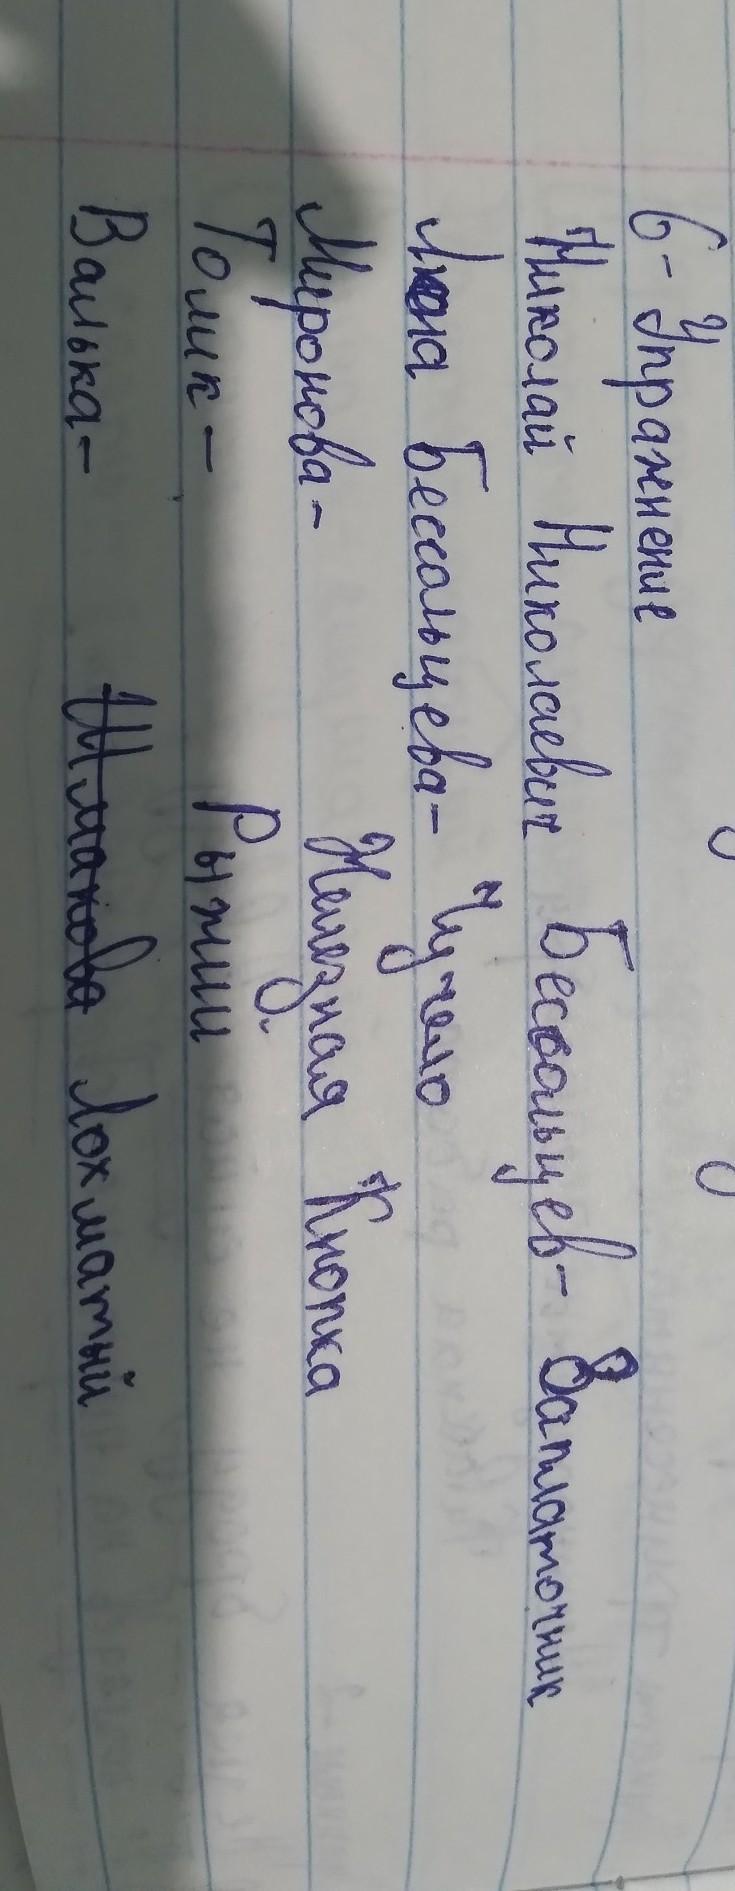 6- Упражнение
Николай Николаевич Бессольцев- Заплаточник
Лена Бессольцева- Чучело
Миронова- Железная Кнопка
Толик- Рыжий
Валька- Лохматый